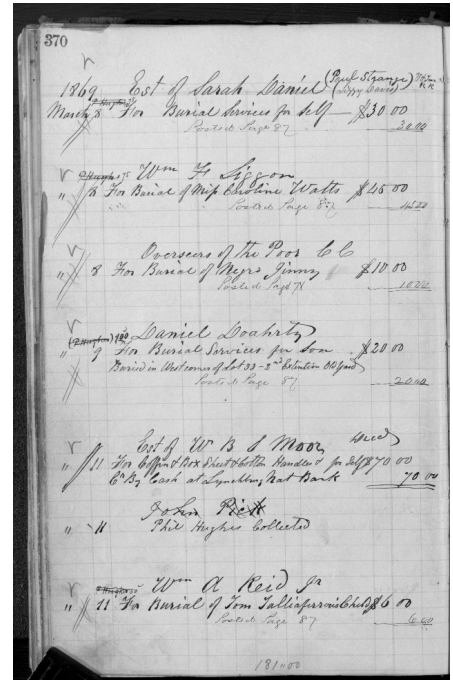 370
1869 Est of Sarah Daniel (Paul Strange)
(Lizzy Davis)
March 8 For Burial Services for Self — $30.00
Posted Page 87 30.00
Wm H Siggon
" 8 For Burial of Miss Caroline Watts $45 00
Posted Page 87 45 00
Overseers of the Poor C C
" 8 For Burial of Negro Jinny $10 00
Posted Page 78 10 00
Daniel Doaherty
" 9 For Burial Services for Son — $20 00
Buried in West corner of Lot 33 - 2nd Extention Old Yard
Posted Page 87 20.00
Est of W B S Moor
" 11 For Coffin & Box Sheet & Cotton Handles & for Self $70 00
Cr By Cash at Lynchburg Nat Bank 70 00
John
" 11 Phil Hughes Collected
Wm A Reid Jr
" 11 For Burial of Tom Talliaferros Child $6 00
Posted Page 87 6.00
181.00